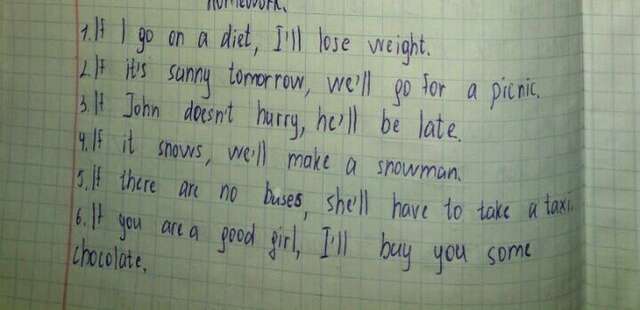 Homework.
1. If I go on a diet, I'll lose weight.
2. If it's sunny tomorrow, we'll go for a picnic.
3. If John doesn't hurry, he'll be late.
4. If it snows, we'll make a snowman.
5. If there are no buses, she'll have to take a taxi.
6. If you are a good girl, I'll buy you some
chocolate.